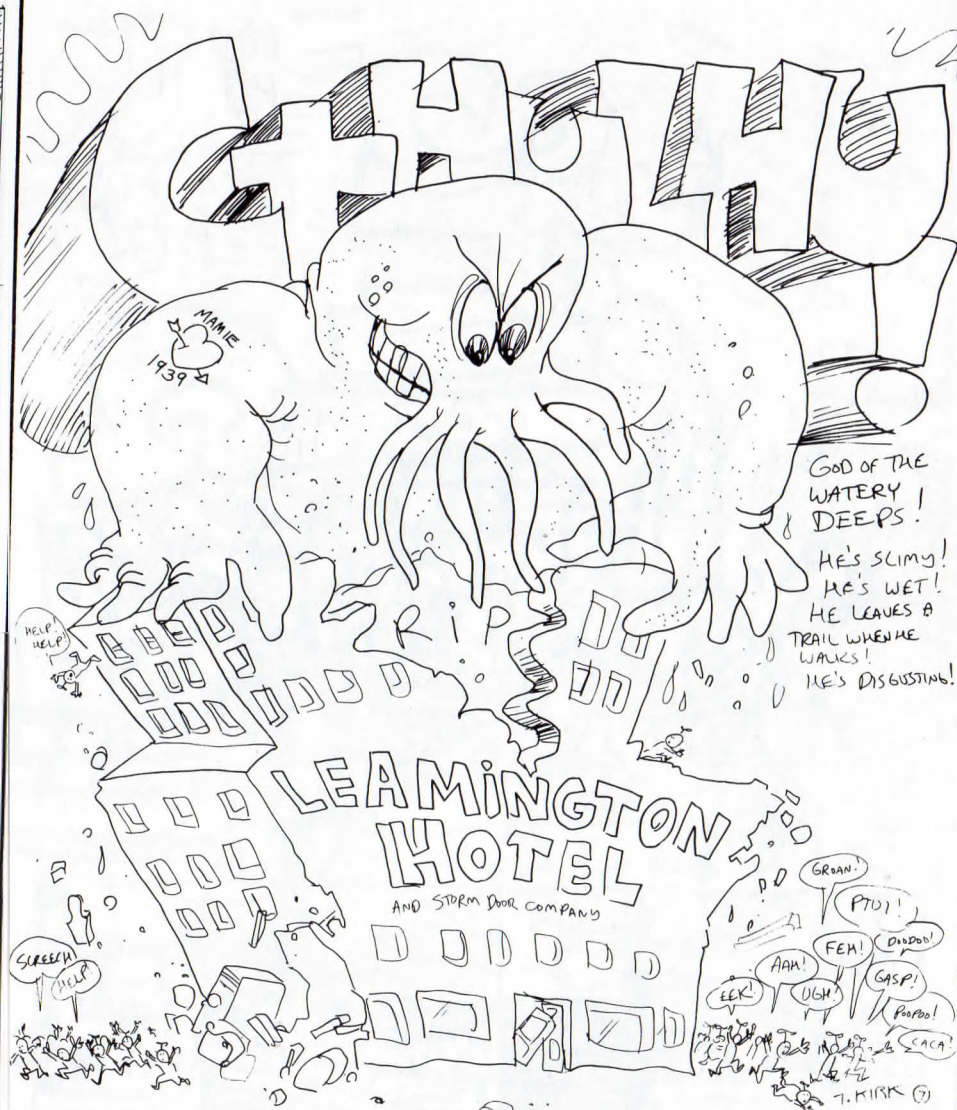 CTHULHU!
MAMIE
1939
GOD OF THE
WATERY
DEEPS!
HE'S SLIMY!
HE'S WET!
HE LEAVES A
TRAIL WHEN HE
WALKS!
HE'S DISGUSTING!
HELP!
HELP!
RIP
LEAMINGTON
HOTEL
AND STORM DOOR COMPANY
SCREECH
HELP!
GROAN!
PTUI!
DOODOO!
FEH!
AAH!
GASP!
EEK!
UGH!
POOPOO!
CACA!
T. KIRK 7